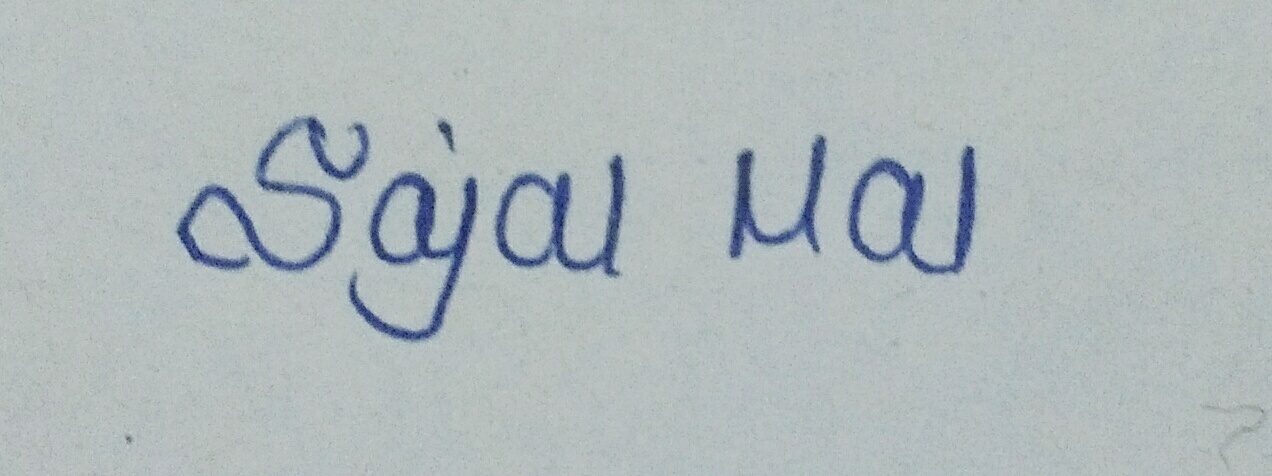 Sajal Mal